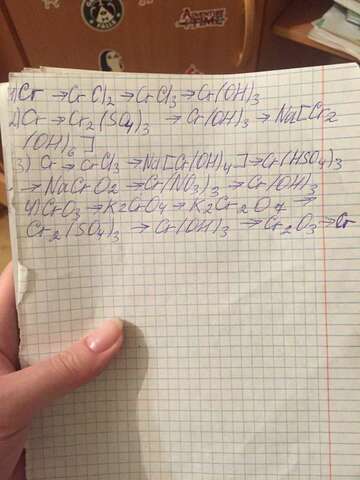 ADVENTURE TIME
1) Cr → CrCl2 → CrCl3 → Cr(OH)3
2) Cr → Cr2(SO4)3 → Cr(OH)3 → Na[Cr2
(OH)6]
3) Cr → CrCl3 → Na[Cr(OH)4] → Cr(HSO4)3
→ NaCrO2 → Cr(NO3)3 → Cr(OH)3
4) CrO3 → K2CrO4 → K2Cr2O7 →
Cr2(SO4)3 → Cr(OH)3 → Cr2O3 → Cr